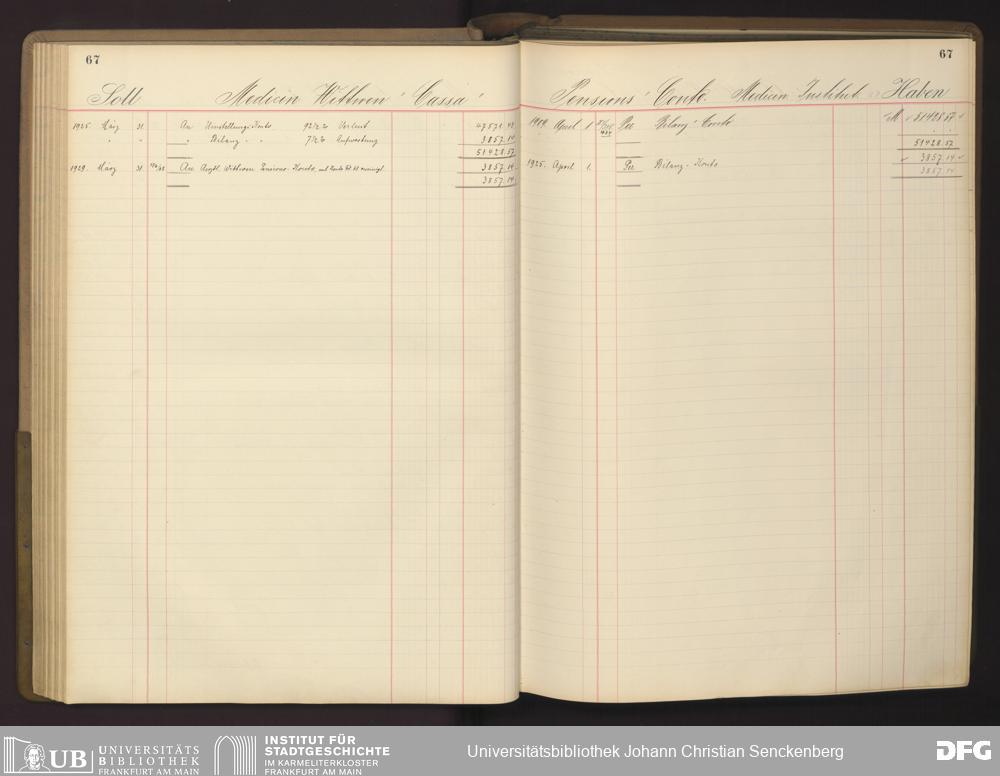 67
Soll Medicin Wittwen Cassa
1925. März 31. An Umstellungs-Konto 92½% Verlust 47571.43
" " " Bilanz " 7½% Aufwertung 3857.14
51428.57
1929. März 31. An Wittwen Pensions-Konto 3857.14
3857.14
67
Pensions Conto Medicin. Institut Haben
April 1 Per Bilanz Conto M 51428.57
51428.57
1925. April 1. Per Bilanz-Konto 3857.14
3857.14
UB UNIVERSITÄTS
BIBLIOTHEK
FRANKFURT AM MAIN
INSTITUT FÜR
STADTGESCHICHTE
IM KARMELITERKLOSTER
FRANKFURT AM MAIN
Universitätsbibliothek Johann Christian Senckenberg
DFG